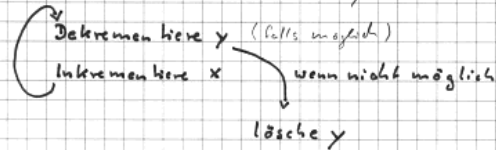 Dekrementiere y (falls möglich)
Inkrementiere x wenn nicht möglich
lösche y